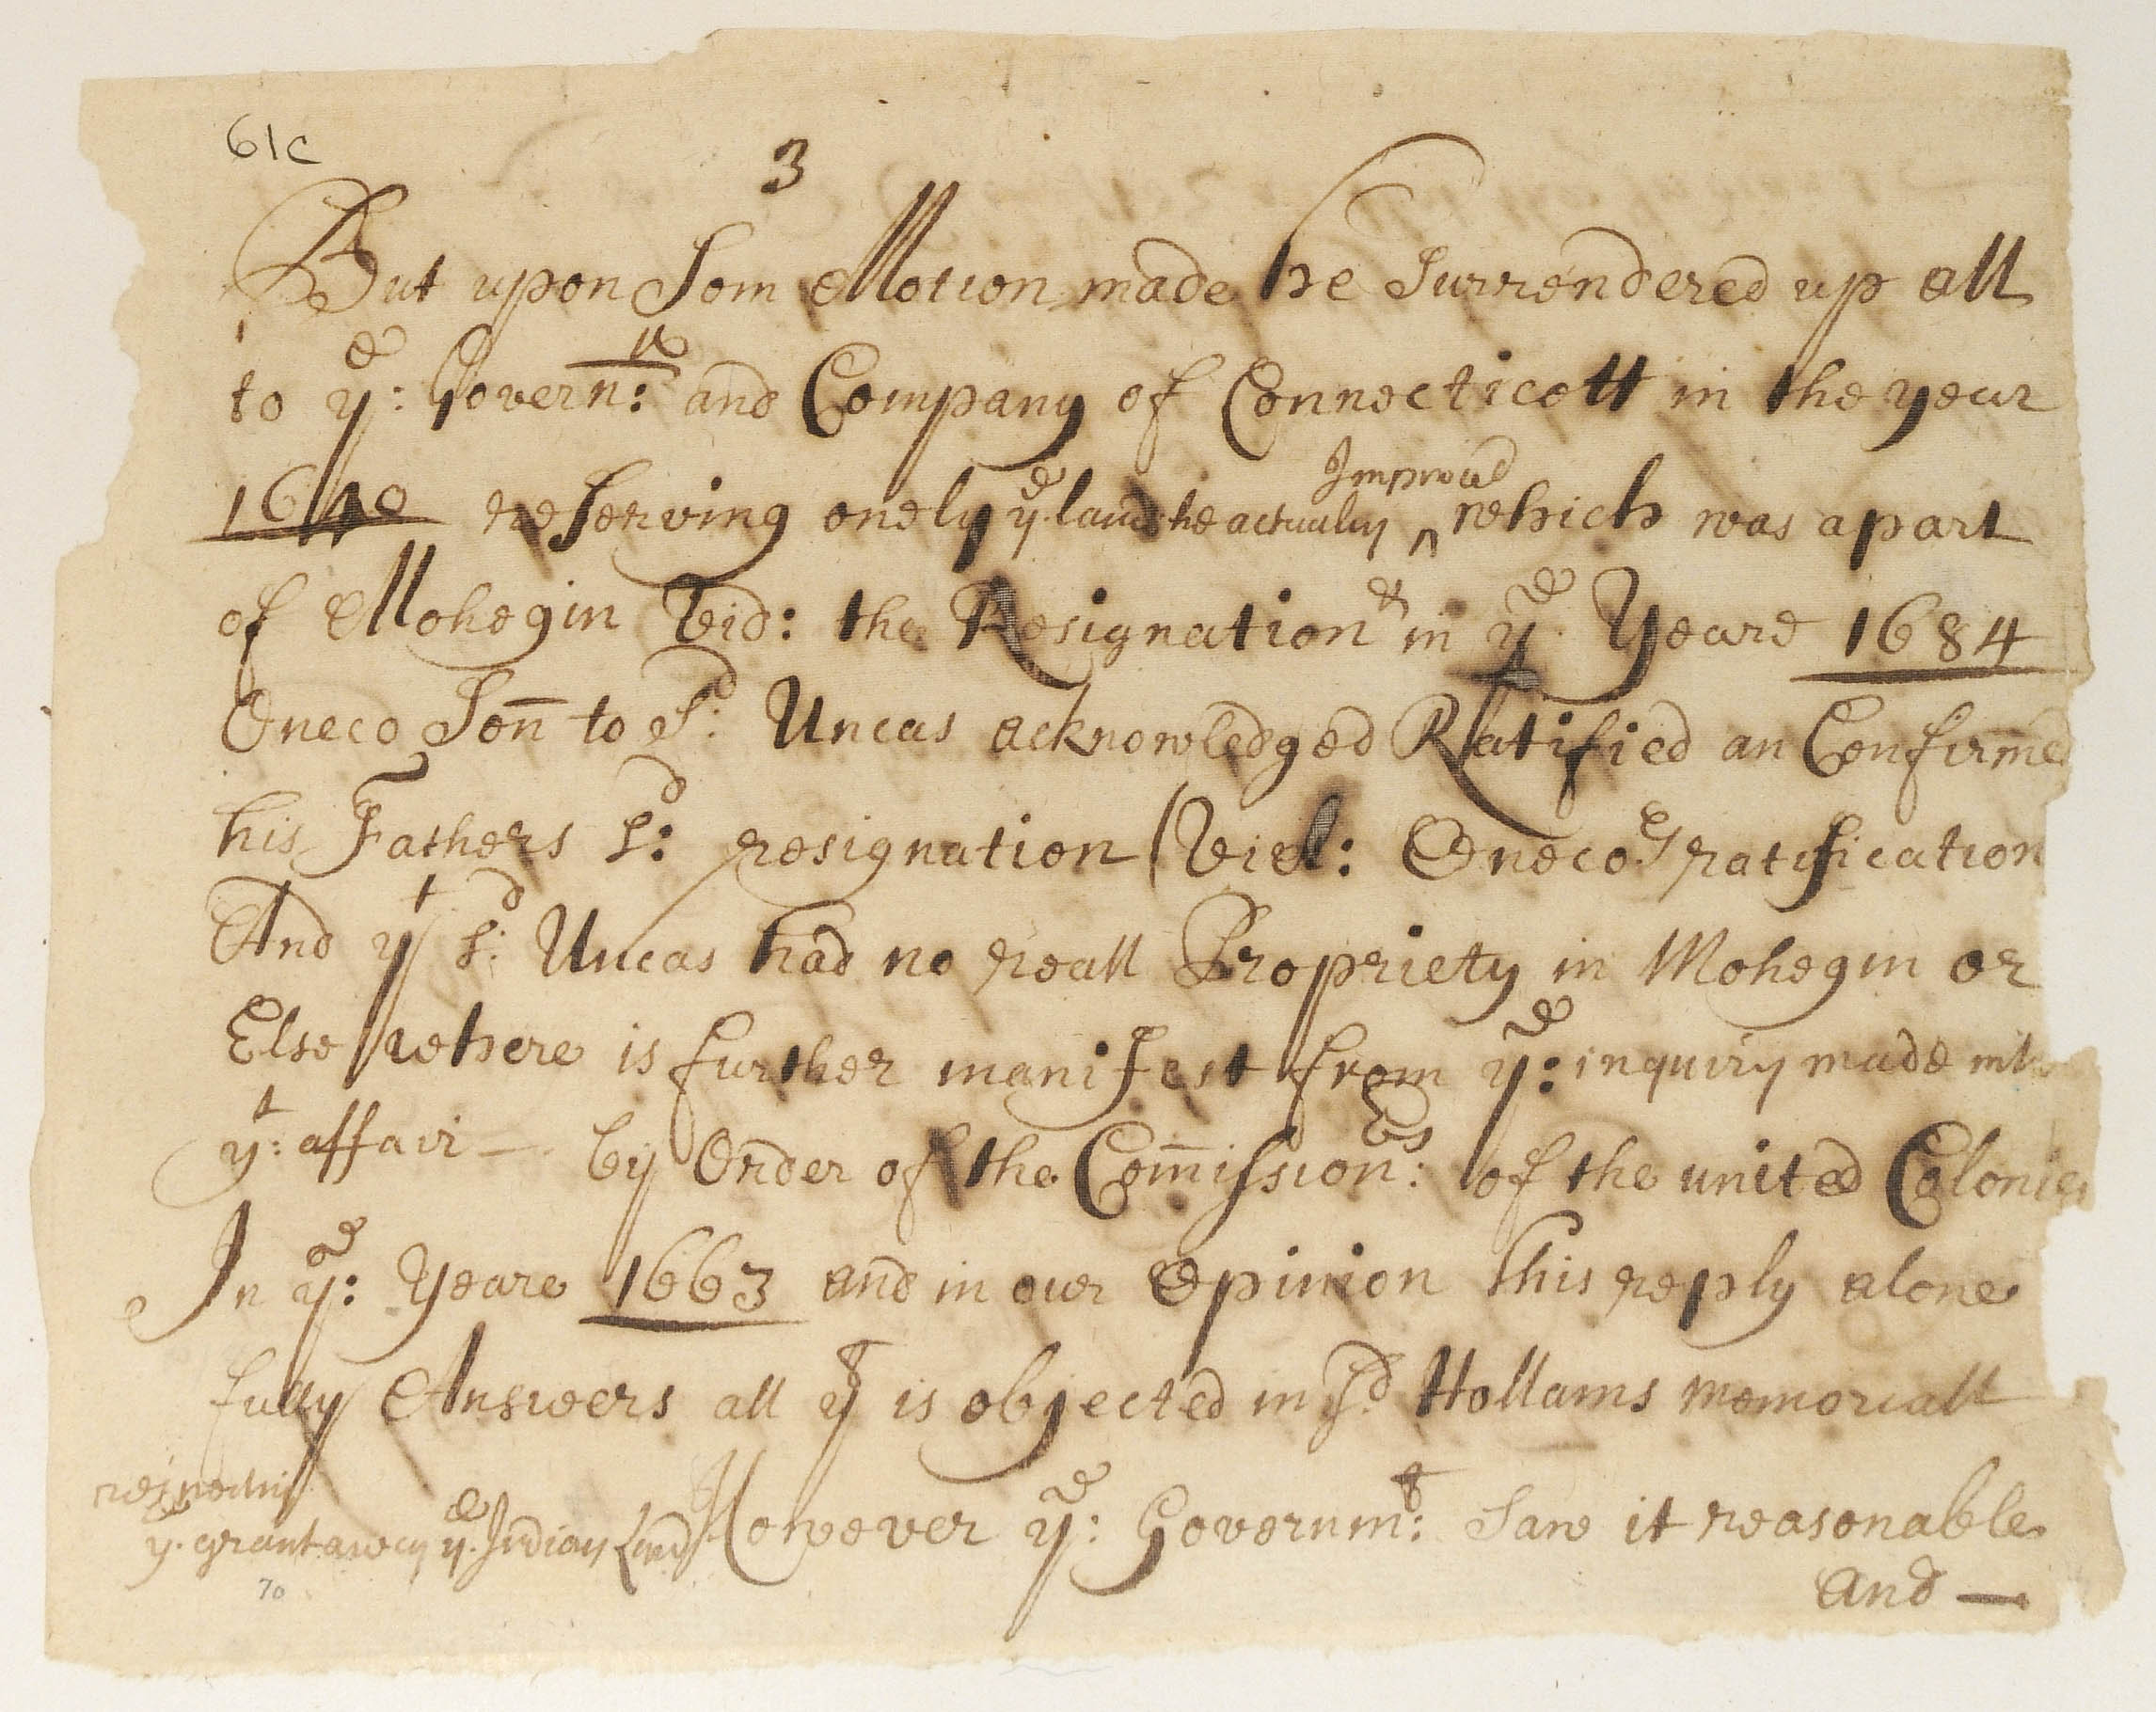 61c
3
But upon Som Motion made he Surrendered up all
to yͤ: Govern: and Company of Connecticott in the year
1640 reserving onely yͤ land he actualy ^ Improud which was a part
of Mohegin Vid: the Resignation & in yͤ Yeare 1684
Oneco Son̄ to Sᵈ: Uncas acknowledged Ratified an Confirmed
his Fathers sᵈ: resignation (Vid: Onecoes ratification
And yᵗ sᵈ: Uncas had no reall Propriety in Mohegin or
Else where is further manifest from yͤ: inquiry made into
yᵗ: affair — by Order of the Com̄issionʳˢ: of the united Colonies
In yͤ: Yeare 1663 and in our Opinion this reply alone
fully Answers all yᵗ is objected in sᵈ Hollams memoriall
respecting
yͤ. grant away yͤ. Indian Land However yͤ: Governmᵗ: Saw it reasonable
and —
70